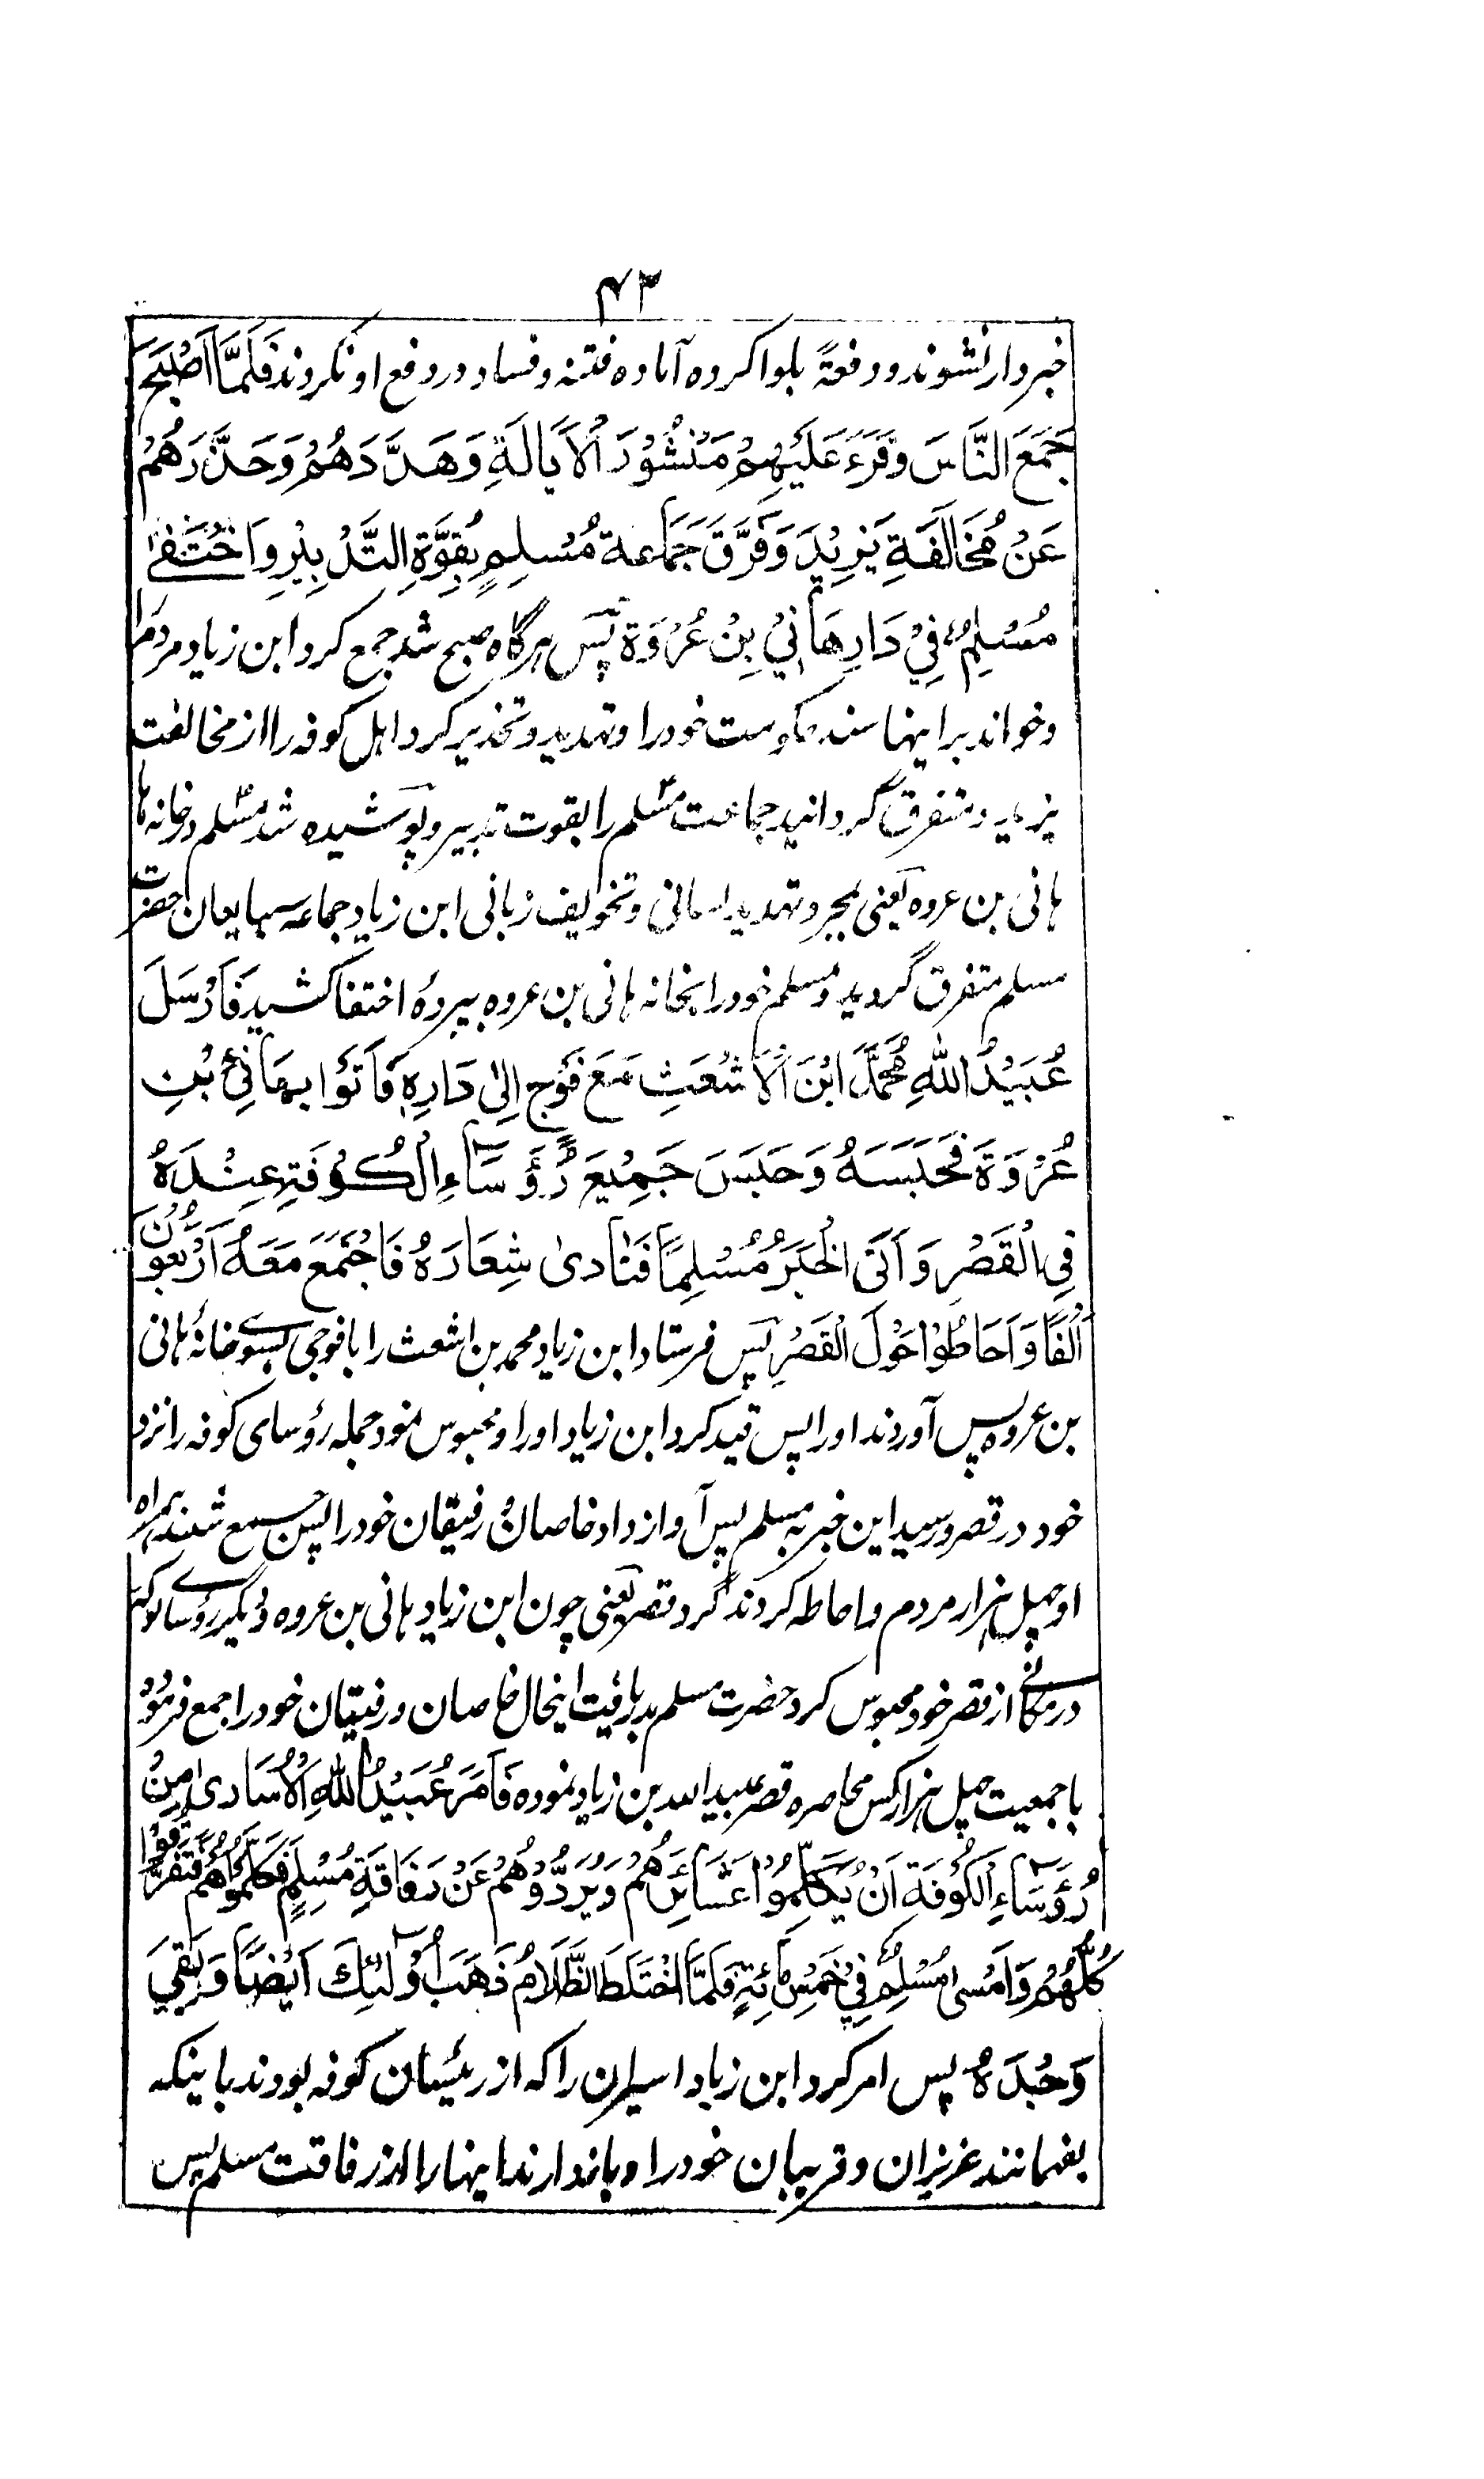 ۴۲
خبردار نشوند و دفعةً بلوا کرده آماده فتنه و فساد در دفع او نکردند فَلَمَّا اَصْبَحَ
جَمَعَ النَّاسَ وَقَرَءَ عَلَيْهِمْ مَنْشُوْرَ الْاَيَالَةِ وَهَدَّدَهُمْ وَحَذَّرَهُمْ
عَنْ مُخَالَفَةِ يَزِيْدَ وَفَرَّقَ جَمَاعة مُسْلِمٍ بِقُوَّةِ التَّدْبِيْرِ وَاخْتَفٰى
مُسْلِمٌ فِيْ دَارِ هَانِيْ بِنْ عُرْوَة پس هرگاه صبح شد جمع کرد ابن زیاد مردم را
و خواند بر اینها سند حکومت خود را و تهدید و تحذیر کرد اهل کوفه را از مخالفت
یزید و متفرق گردانید جماعت مسلم را بقوت تدبیر و پوشیده شد مسلم در خانه
هانی بن عروه یعنی بمجرد تهدید لسانی و تخویف زبانی ابن زیاد جماعه مبایعان حضرت
مسلم متفرق گردید و مسلم خود را بخانه هانی بن عروه بپرده اختفا کشید فَاَرْسَلَ
عُبَيْدُ اللّٰهِ مُحَمَّدَ ابْنَ الْاَشْعَثِ مَعَ فَوْجٍ اِلٰى دَارِهٖ فَاَتَوْا بِهَانِیْ بْنِ
عُرْوَةَ فَحَبَسَهٗ وَحَبَسَ جَمِيْعَ رُؤَسَاءِ الْكُوْفَةِ عِنْدَهٗ
فِي الْقَصْرِ وَاَتَى الْخَبَرُ مُسْلِمًا فَنَادٰى شِعَارَهٗ فَاجْتَمَعَ مَعَهٗ اَرْبَعُوْنَ
اَلْفًا وَاَحَاطُوْا حَوْلَ الْقَصْرِ پس فرستاد ابن زیاد محمد بن اشعث را با فوجی بسوے خانهٔ هانی
بن عروه پس آوردند او را پس قید کرد ابن زیاد او را و محبوس نمود جمله رؤسای کوفه را نزد
خود در قصر و رسید این خبر به مسلم پس آواز داد خاصان و رفیقان خود را پس جمع شدند همراه
او چهل هزار مردم و احاطه کردند گرد قصر یعنی چون ابن زیاد هانی بن عروه و دیگر رؤساے کوفه
در مکانے از قصر خود محبوس کرد حضرت مسلم بدریافت اینحال خاصان و رفیقان خود را جمع فرموده
با جمعیت چهل هزار کس محاصره قصر عبید الله بن زیاد نموده فَاَمَرَ عُبَيْدُ اللّٰهِ الْاُسَارٰى مِنْ
رُؤَسَاءِ الْكُوْفَةِ اَنْ يُكَلِّمُوْا عَشَائِرَهُمْ وَيَرُدُّوْهُمْ عَنْ رَفَاقَةِ مُسْلِمٍ فَكَلَّمُوْهُمْ فَتَفَرَّقُوْا
كُلُّهُمْ وَاَمْسٰى مُسْلِمٌ فِيْ خَمْسِ مِائَةٍ فَلَمَّا اخْتَلَطَ الظَّلَامُ ذَهَبَ اُوْلٰئِكَ اَيْضًا وَبَقِيَ
وَحْدَهٗ پس امر کرد ابن زیاد اسیران را که از رئیسان کوفه بودند باینکه
بفهمانند عزیزان و قریبان خود را و بازدارند اینها را از رفاقت مسلم پس